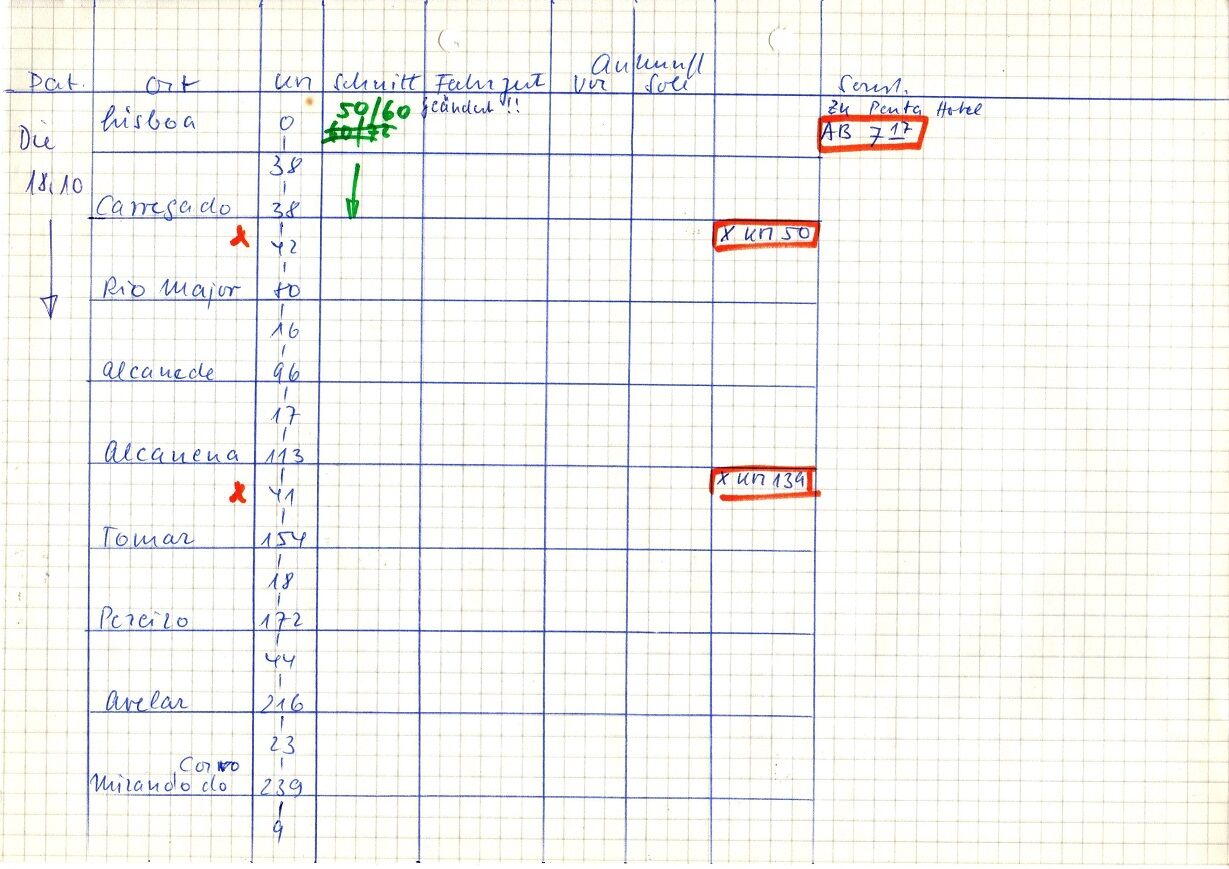 Ankunft
Dat. Ort KM Schnitt Fahrzeit Vor Soll Sonst.
Lisboa 0 50/60 geändert!! zu Penta Hotel
Die 60/72 AB 7 17
38
18.10 Carregado 38
x 42 x KM 50
Rio Major 80
16
Alcanede 96
17
Alcanena 113
x 41 x KM 139
Tomar 154
18
Pereiro 172
44
Avelar 216
23
Corvo
Mirando do 239
9